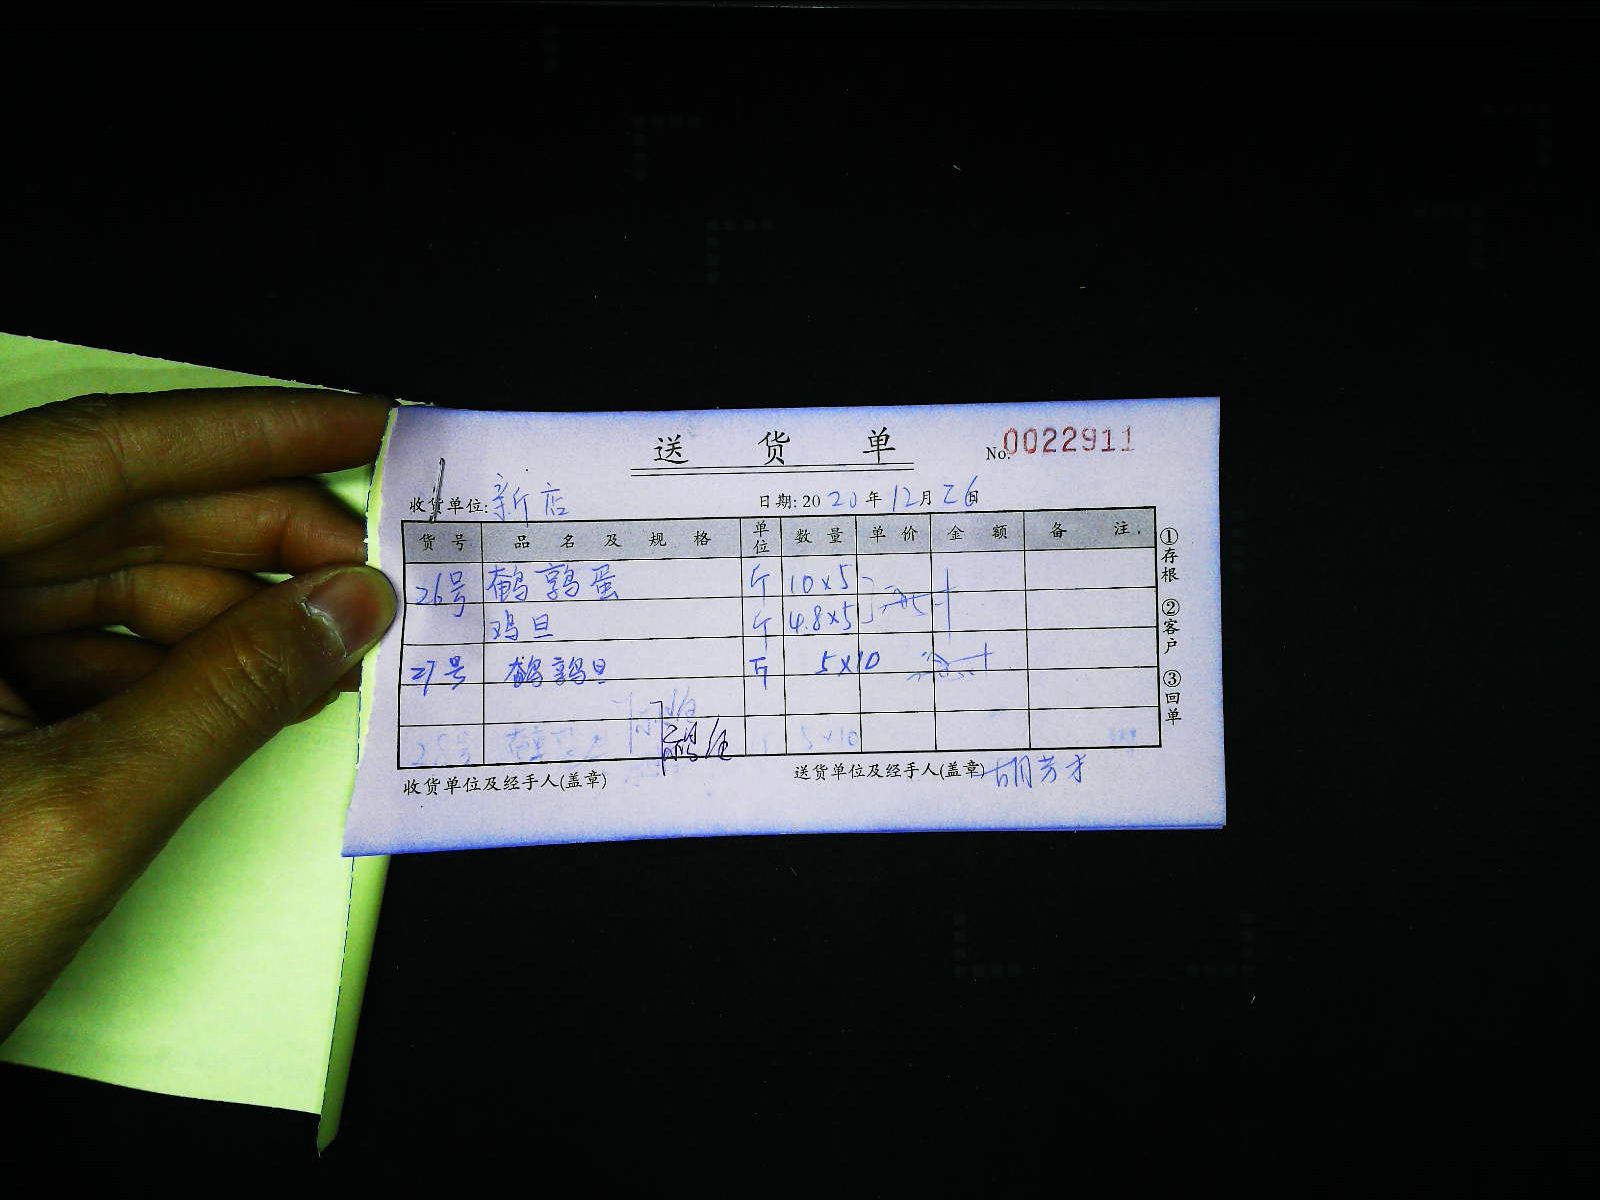 送 货 单 No.0022911
收货单位: 新店 日期: 2020年12月26日
货 号 品 名 及 规 格 单位 数 量 单 价 金 额 备 注
26号 鹌鹑蛋 斤 10×5
鸡旦 斤 4.8×5
27号 鹌鹑旦 斤 5×10
5×10
收货单位及经手人(盖章) 送货单位及经手人(盖章) 胡芳才
①存根 ②客户 ③回单